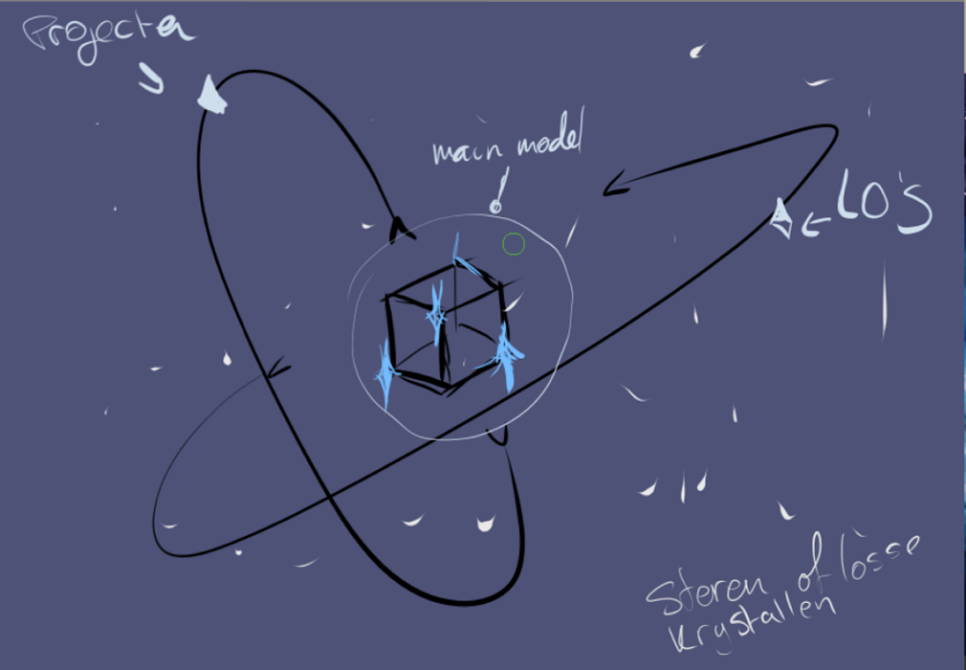 Projecten
main model
LO's
Steren of lòsse
krystallen